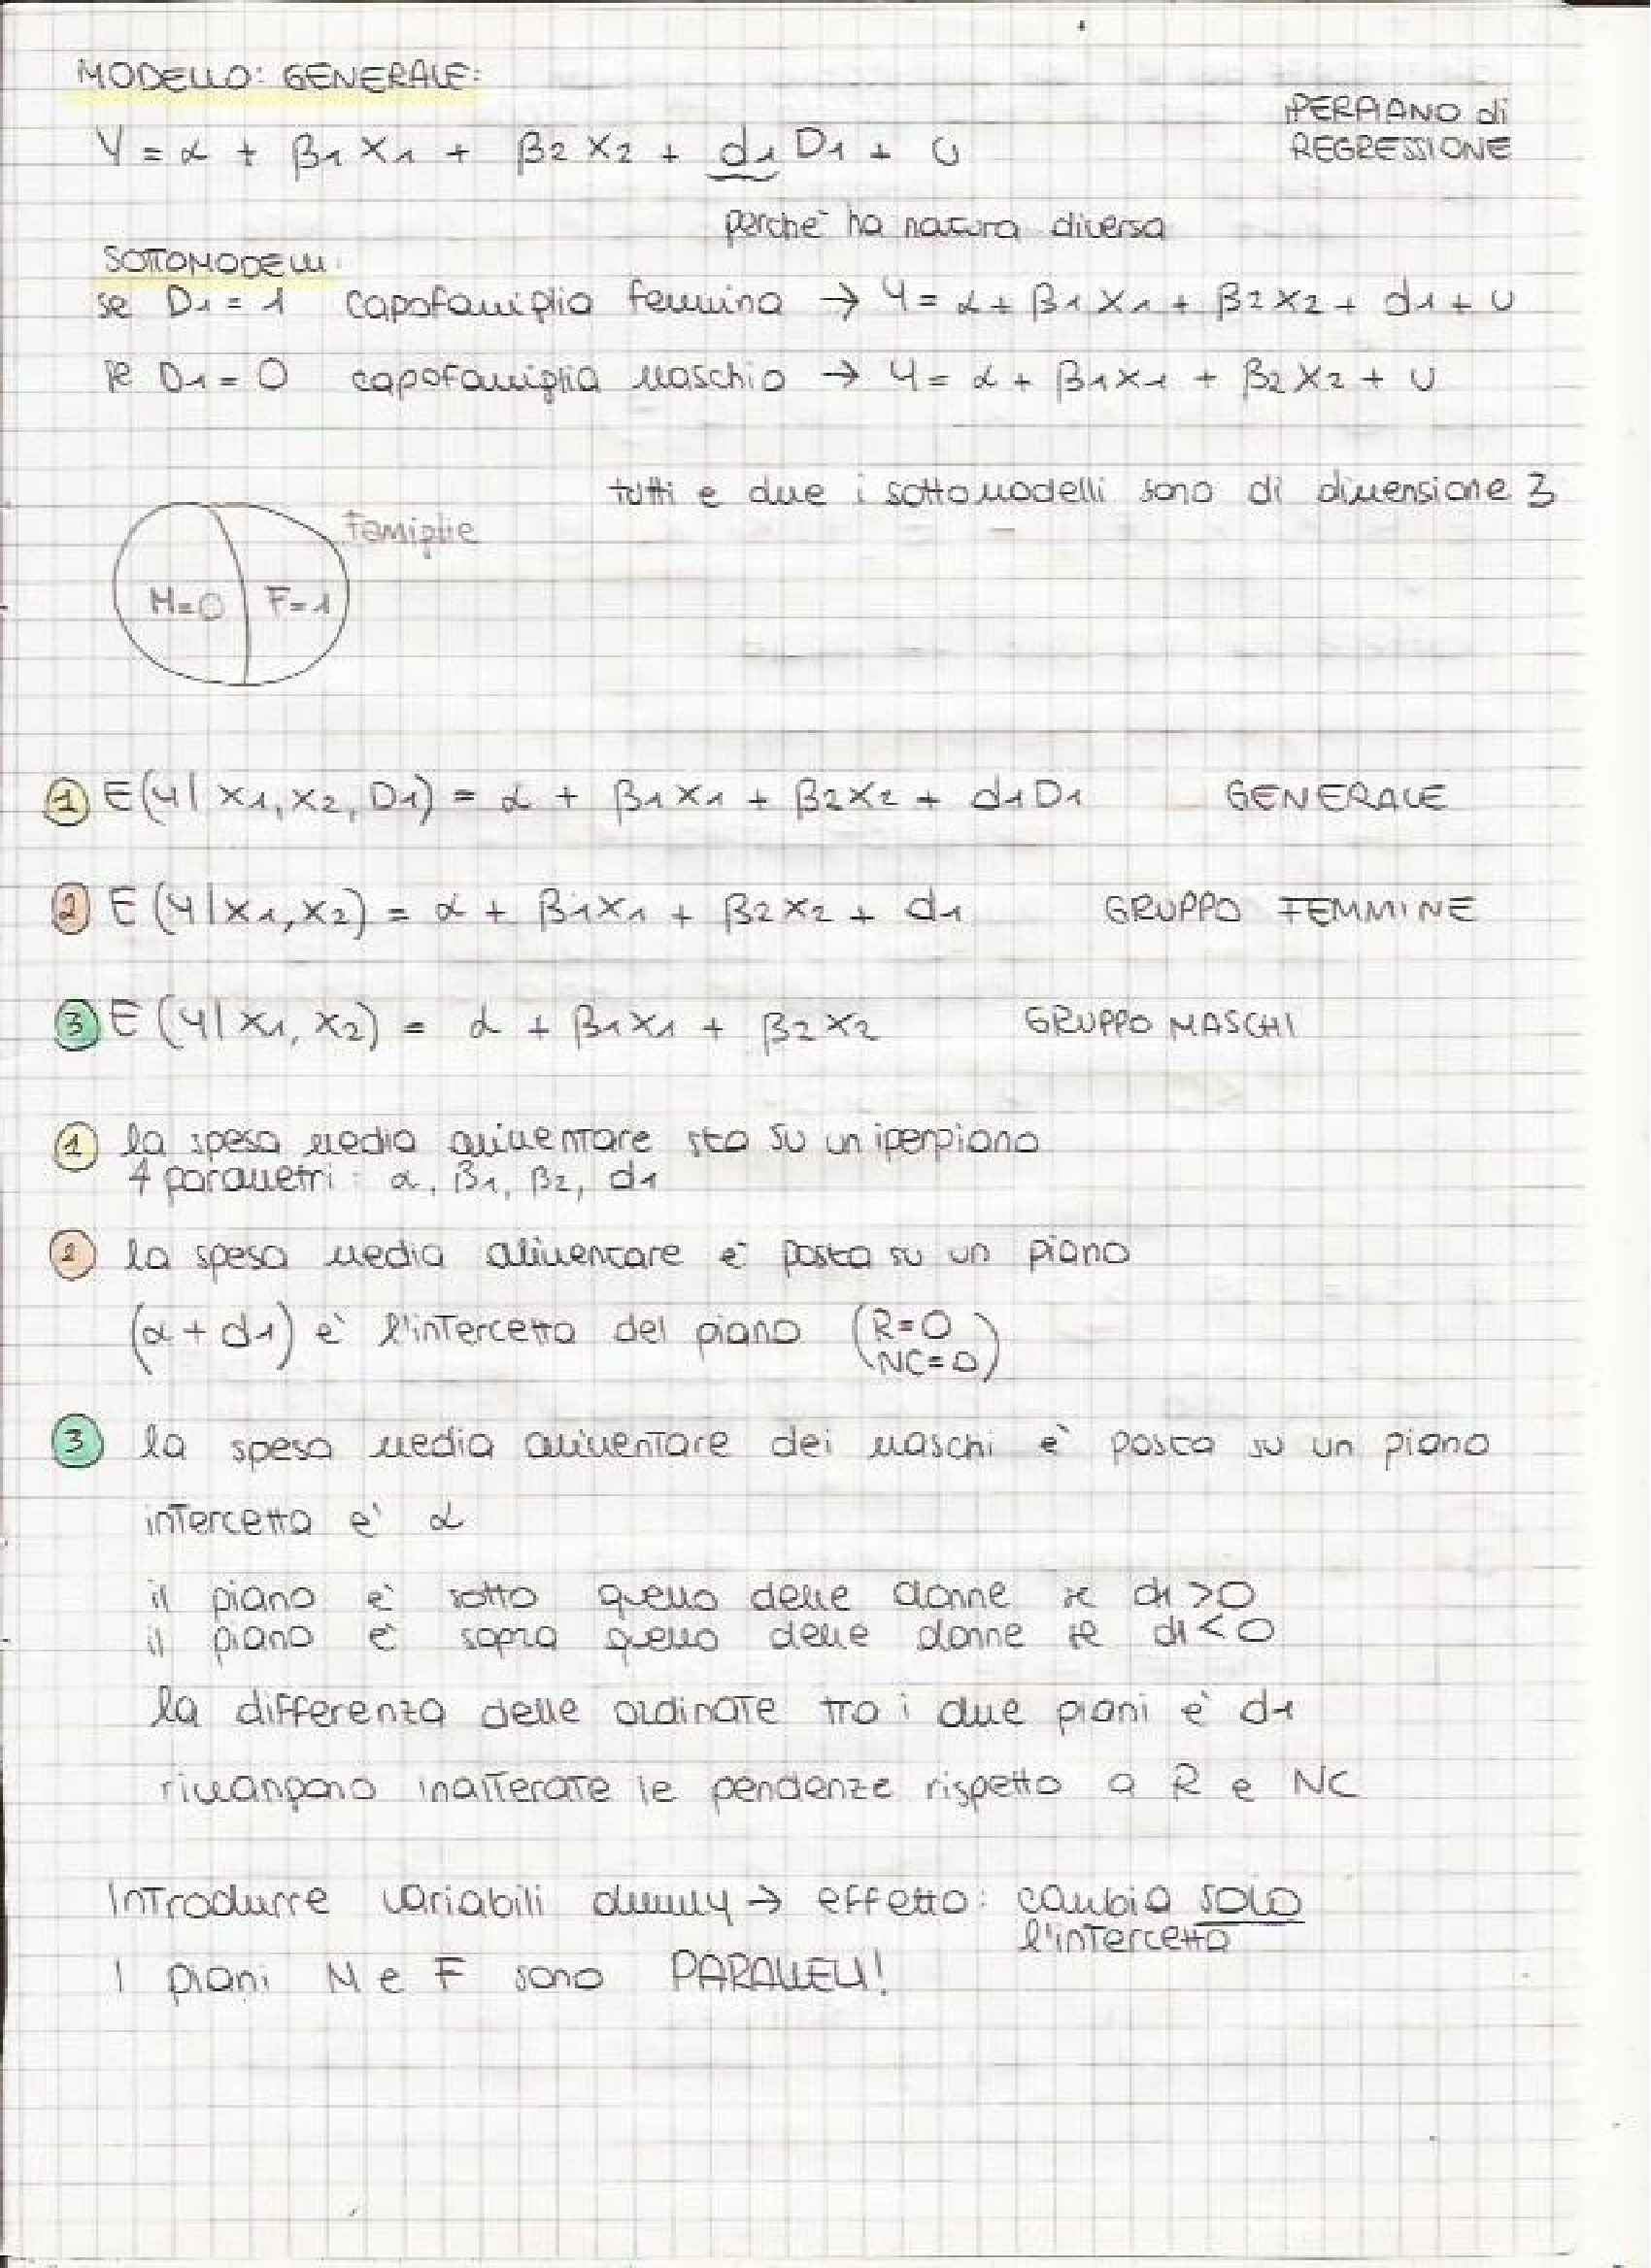 MODELLO: GENERALE:
Y = α + β1 X1 + β2 X2 + d1 D1 + U
IPERPIANO di
REGRESSIONE
perchè ha natura diversa
SOTTOMODELLI:
se D1 = 1 capofamiglia femmina → Y = α + β1 X1 + β2 X2 + d1 + U
se D1 = 0 capofamiglia maschio → Y = α + β1 X1 + β2 X2 + U
tutti e due i sottomodelli sono di dimensione 3
Famiglie
M=0 F=1
1 E(Y| X1, X2, D1) = α + β1X1 + β2X2 + d1D1 GENERALE
2 E(Y|X1, X2) = α + β1X1 + β2X2 + d1 GRUPPO FEMMINE
3 E(Y|X1, X2) = α + β1X1 + β2X2 GRUPPO MASCHI
1 la spesa media alimentare sta su un iperpiano
4 parametri: α, β1, β2, d1
2 la spesa media alimentare è posta su un piano
(α + d1) è l'intercetta del piano (R=0
NC=0)
3 la spesa media alimentare dei maschi è posta su un piano
intercetta è α
il piano è sotto quello delle donne se d1 > 0
il piano è sopra quello delle donne se d1 < 0
la differenza delle ordinate tra i due piani è d1
rimangono inalterate le pendenze rispetto a R e NC
Introdurre variabili dummy → effetto: cambia SOLO
l'intercetta
I piani M e F sono PARALLELI!